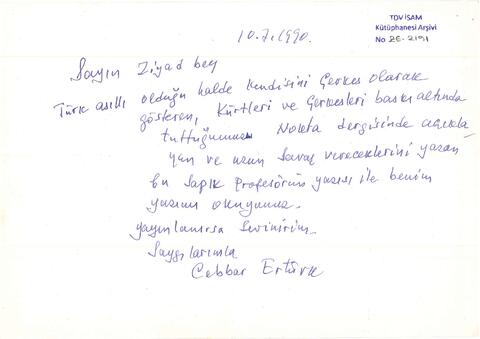 TDV İSAM
Kütüphanesi Arşivi
No 2E-2191
10.7.1990.
Sayın Ziyad bey
Türk asıllı olduğu halde kendisini Çerkes olarak
gösteren, Kürtleri ve Çerkesleri baskı altında
tuttuğumuzu Nokta dergisinde açıkla
yan ve uzun savaş vereceklerini yazan
bu sapık profesörün yazısı ile benim
yazımı okuyunuz.
yayınlanırsa sevinirim.
Saygılarımla
Cebbar Ertürk